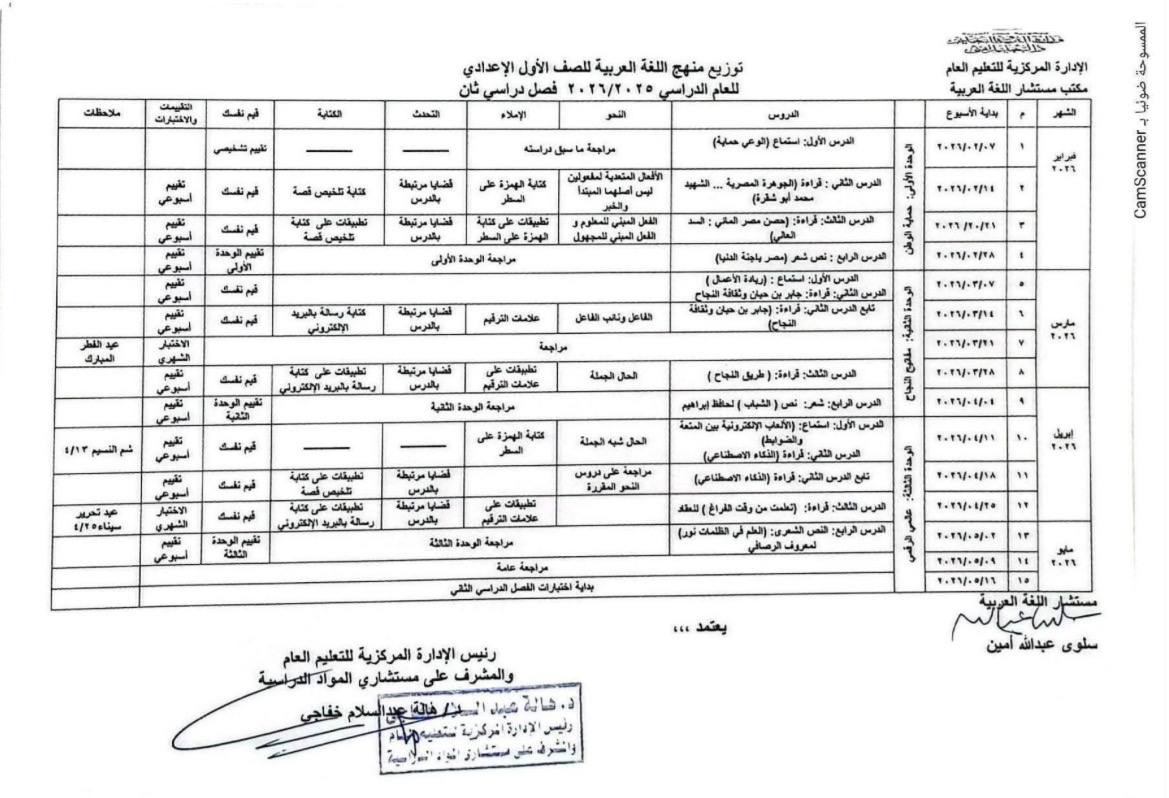 الممسوحة ضوئيا بـ CamScanner
الإدارة المركزية للتعليم العام
مكتب مستشار اللغة العربية
توزيع منهج اللغة العربية للصف الأول الإعدادي
للعام الدراسي ٢٠٢٦/٢٠٢٥ فصل دراسي ثان
الشهر م بداية الأسبوع الدروس النحو الإملاء التحدث الكتابة قيم نفسك التقييمات والاختبارات ملاحظات
فبراير ٢٠٢٦
الوحدة الأولى: حماية الوطن
١ ٢٠٢٦/٠٢/٠٧ الدرس الأول: استماع (الوعي حماية) مراجعة ما سبق دراسته ——— ——— تقييم تشخيصي
٢ ٢٠٢٦/٠٢/١٤ الدرس الثاني : قراءة (الجوهرة المصرية ... الشهيد محمد أبو شقرة) الأفعال المتعدية لمفعولين ليس أصلهما المبتدأ والخبر كتابة الهمزة على السطر قضايا مرتبطة بالدرس كتابة تلخيص قصة قيم نفسك تقييم أسبوعي
٣ ٢٠٢٦/٠٢/٢١ الدرس الثالث: قراءة: (حصن مصر المائي : السد العالي) الفعل المبني للمعلوم و الفعل المبني للمجهول تطبيقات على كتابة الهمزة على السطر قضايا مرتبطة بالدرس تطبيقات على كتابة تلخيص قصة قيم نفسك تقييم أسبوعي
٤ ٢٠٢٦/٠٢/٢٨ الدرس الرابع : نص شعر (مصر ياجنة الدنيا) مراجعة الوحدة الأولى تقييم الوحدة الأولى تقييم أسبوعي
مارس ٢٠٢٦
الوحدة الثانية: مفاتيح النجاح
٥ ٢٠٢٦/٠٣/٠٧ الدرس الأول: استماع : (ريادة الأعمال ) الدرس الثاني: قراءة: جابر بن حيان وثقافة النجاح قيم نفسك تقييم أسبوعي
٦ ٢٠٢٦/٠٣/١٤ تابع الدرس الثاني: قراءة: (جابر بن حيان وثقافة النجاح) الفاعل ونائب الفاعل علامات الترقيم قضايا مرتبطة بالدرس كتابة رسالة بالبريد الإلكتروني قيم نفسك تقييم أسبوعي
٧ ٢٠٢٦/٠٣/٢١ مراجعة الاختبار الشهري عيد الفطر المبارك
٨ ٢٠٢٦/٠٣/٢٨ الدرس الثالث: قراءة: ( طريق النجاح ) الحال الجملة تطبيقات على علامات الترقيم قضايا مرتبطة بالدرس تطبيقات على كتابة رسالة بالبريد الإلكتروني قيم نفسك تقييم أسبوعي
إبريل ٢٠٢٦
٩ ٢٠٢٦/٠٤/٠٤ الدرس الرابع: شعر: نص ( الشباب ) لحافظ إبراهيم مراجعة الوحدة الثانية تقييم الوحدة الثانية تقييم أسبوعي
الوحدة الثالثة: عالمي الرقمي
١٠ ٢٠٢٦/٠٤/١١ الدرس الأول: استماع: (الألعاب الإلكترونية بين المتعة والضوابط) الدرس الثاني: قراءة (الذكاء الاصطناعي) الحال شبه الجملة كتابة الهمزة على السطر ——— ——— قيم نفسك تقييم أسبوعي شم النسيم ٤/١٣
١١ ٢٠٢٦/٠٤/١٨ تابع الدرس الثاني: قراءة (الذكاء الاصطناعي) مراجعة على دروس النحو المقررة قضايا مرتبطة بالدرس تطبيقات على كتابة تلخيص قصة قيم نفسك تقييم أسبوعي
١٢ ٢٠٢٦/٠٤/٢٥ الدرس الثالث: قراءة: (تعلمت من وقت الفراغ ) للعقاد تطبيقات على علامات الترقيم قضايا مرتبطة بالدرس تطبيقات على كتابة رسالة بالبريد الإلكتروني قيم نفسك الاختبار الشهري عيد تحرير سيناء٤/٢٥
مايو ٢٠٢٦
١٣ ٢٠٢٦/٠٥/٠٢ الدرس الرابع: النص الشعري: (العلم في الظلمات نور) لمعروف الرصافي مراجعة الوحدة الثالثة تقييم الوحدة الثالثة تقييم أسبوعي
١٤ ٢٠٢٦/٠٥/٠٩ مراجعة عامة
١٥ ٢٠٢٦/٠٥/١٦ بداية اختبارات الفصل الدراسي الثاني
مستشار اللغة العربية
سلوى عبدالله أمين
يعتمد ،،،
رئيس الإدارة المركزية للتعليم العام
والمشرف على مستشاري المواد الدراسية
د/ هالة عبدالسلام خفاجي
رئيس الإدارة المركزية للتعليم العام
والمشرف على مستشاري المواد الدراسية